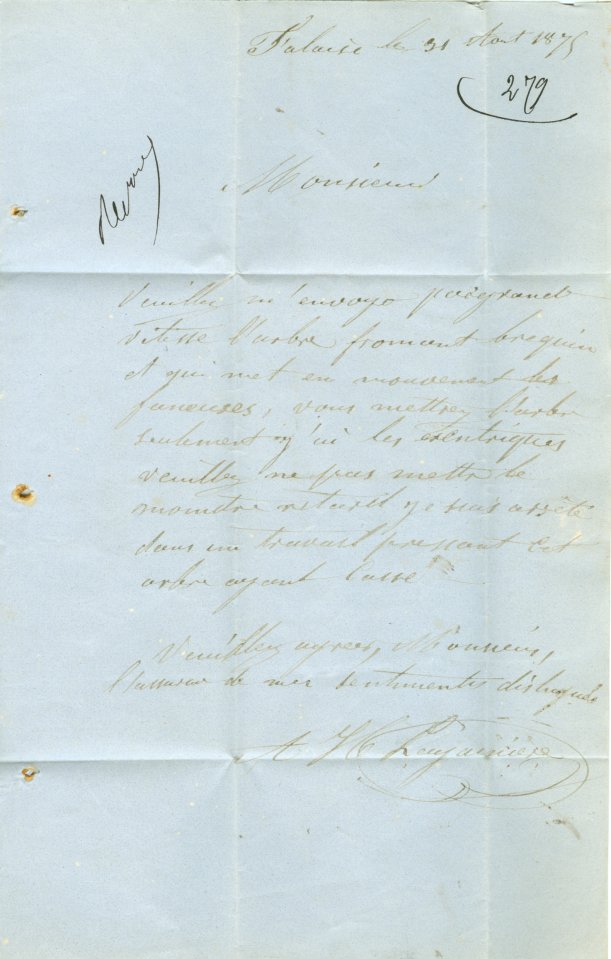 Falaise le 31 Aout 1875
279
Monsieur
Veuillez m'envoyo par grand
vitesse l'arbre fromant brequin
et qui met en mouvement les
faneuses, vous mettrez l'arbr
seulement j'ai les exentriques
veuillez ne pas mettre le
moindre retard je suis arrêté
dans un travail pressant cet
arbre ayant cassé
Veuillez agreer, Monsieur,
l'assurance de mes sentiments distingués
A H